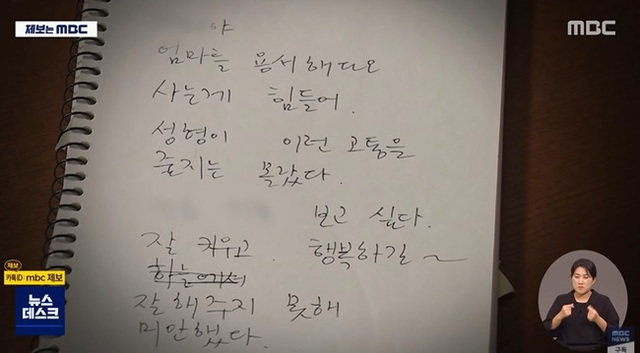 제보는 MBC
MBC
야
엄마를 용서해다오
사는게 힘들어.
성형이 이런 고통을
줄지는 몰랐다.
보고 싶다.
잘 키우고. 행복하길~
하늘에서
잘해주지 못해
미안했다.
제보
카톡ID: mbc 제보
뉴스
데스크
MBC NEWS
구독